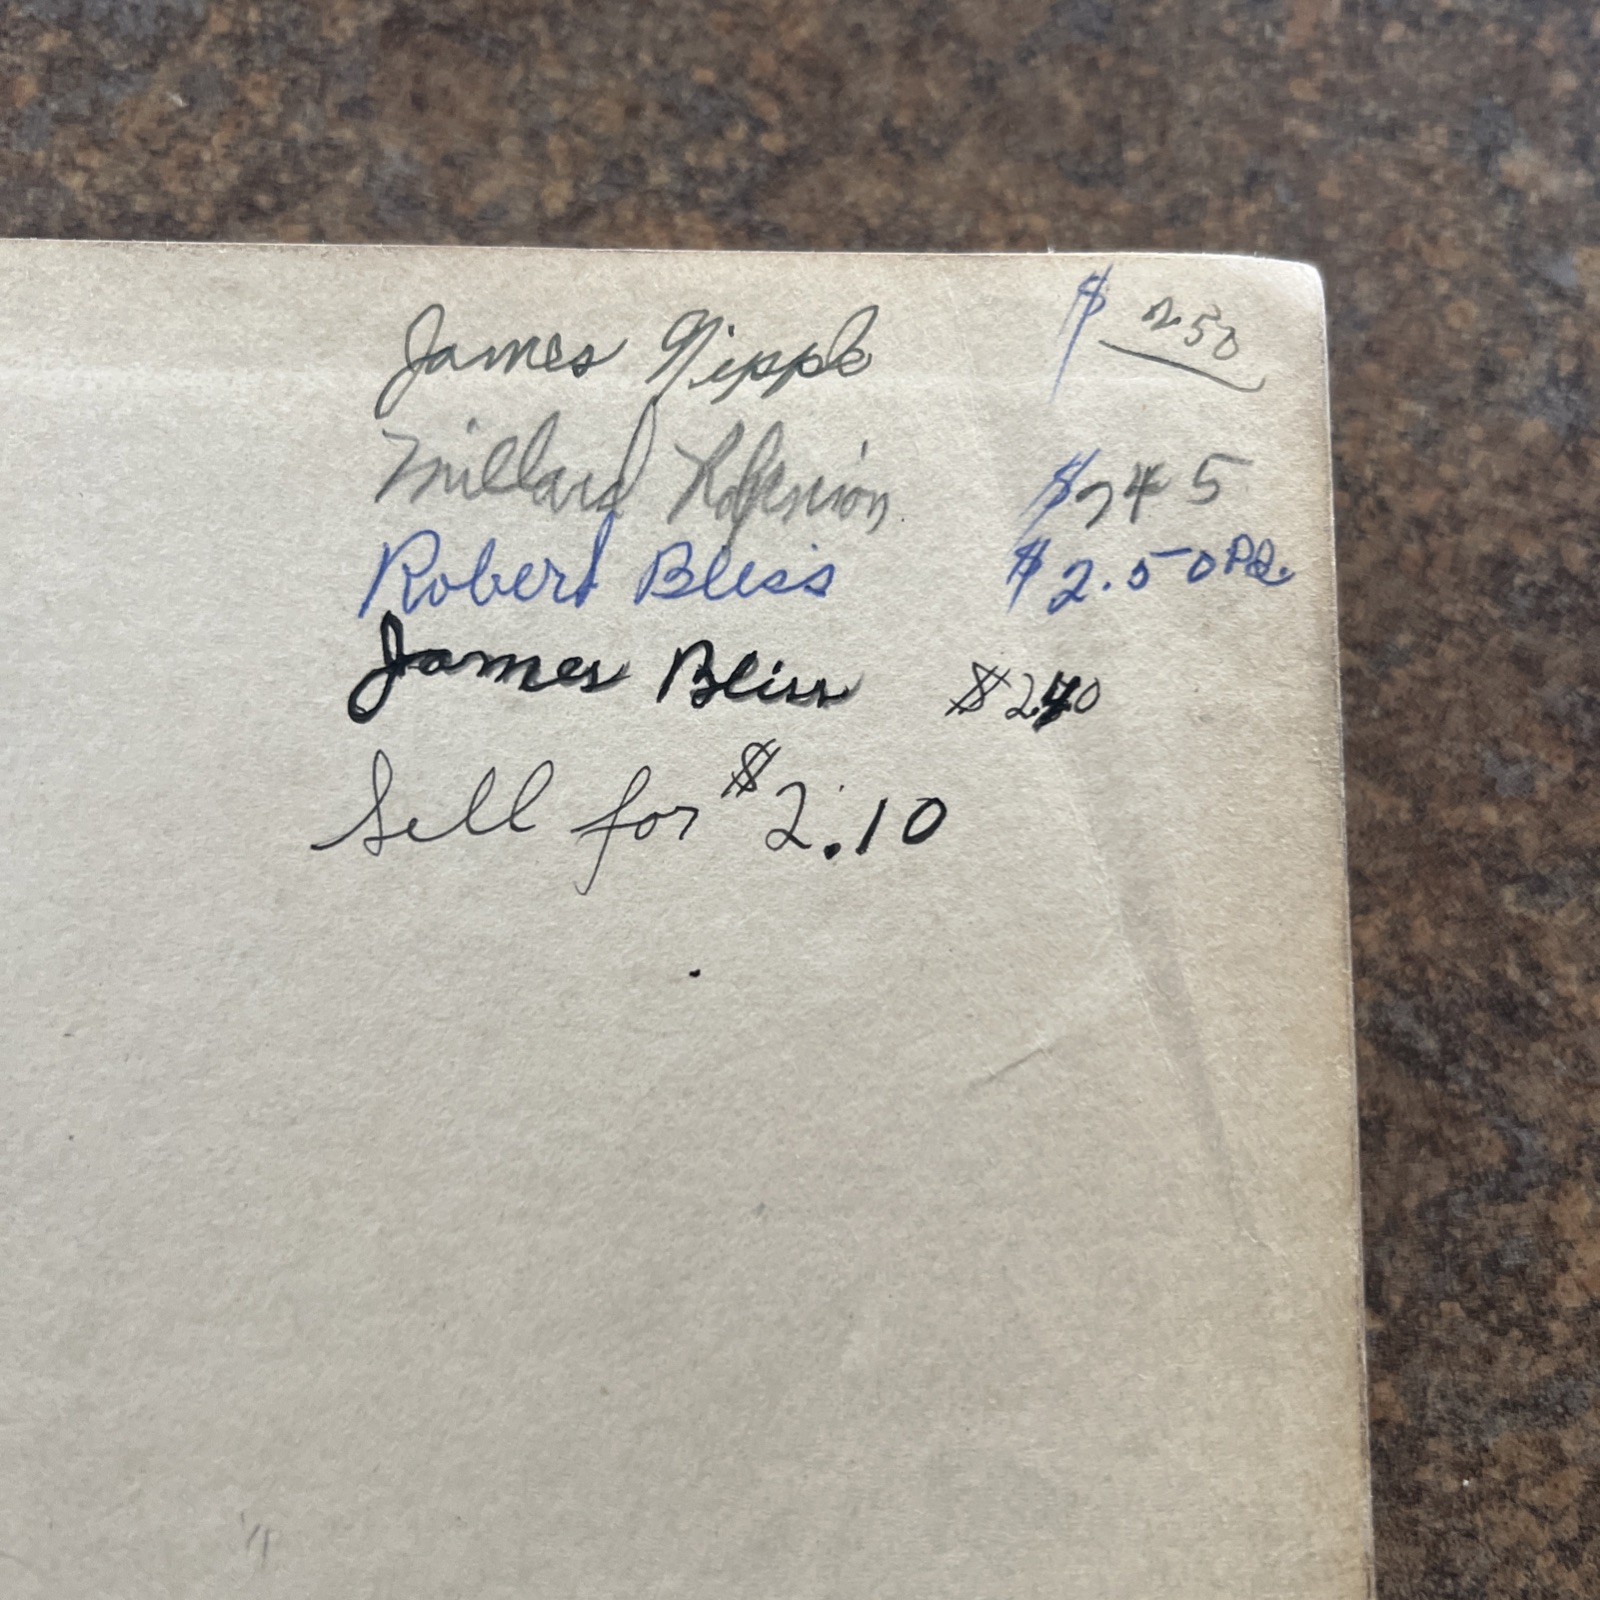 James Nipple $ 2.50
Millard Robinson $2 45
Robert Bliss $2.50 Pd.
James Bliss $2.40
Sell for $2.10